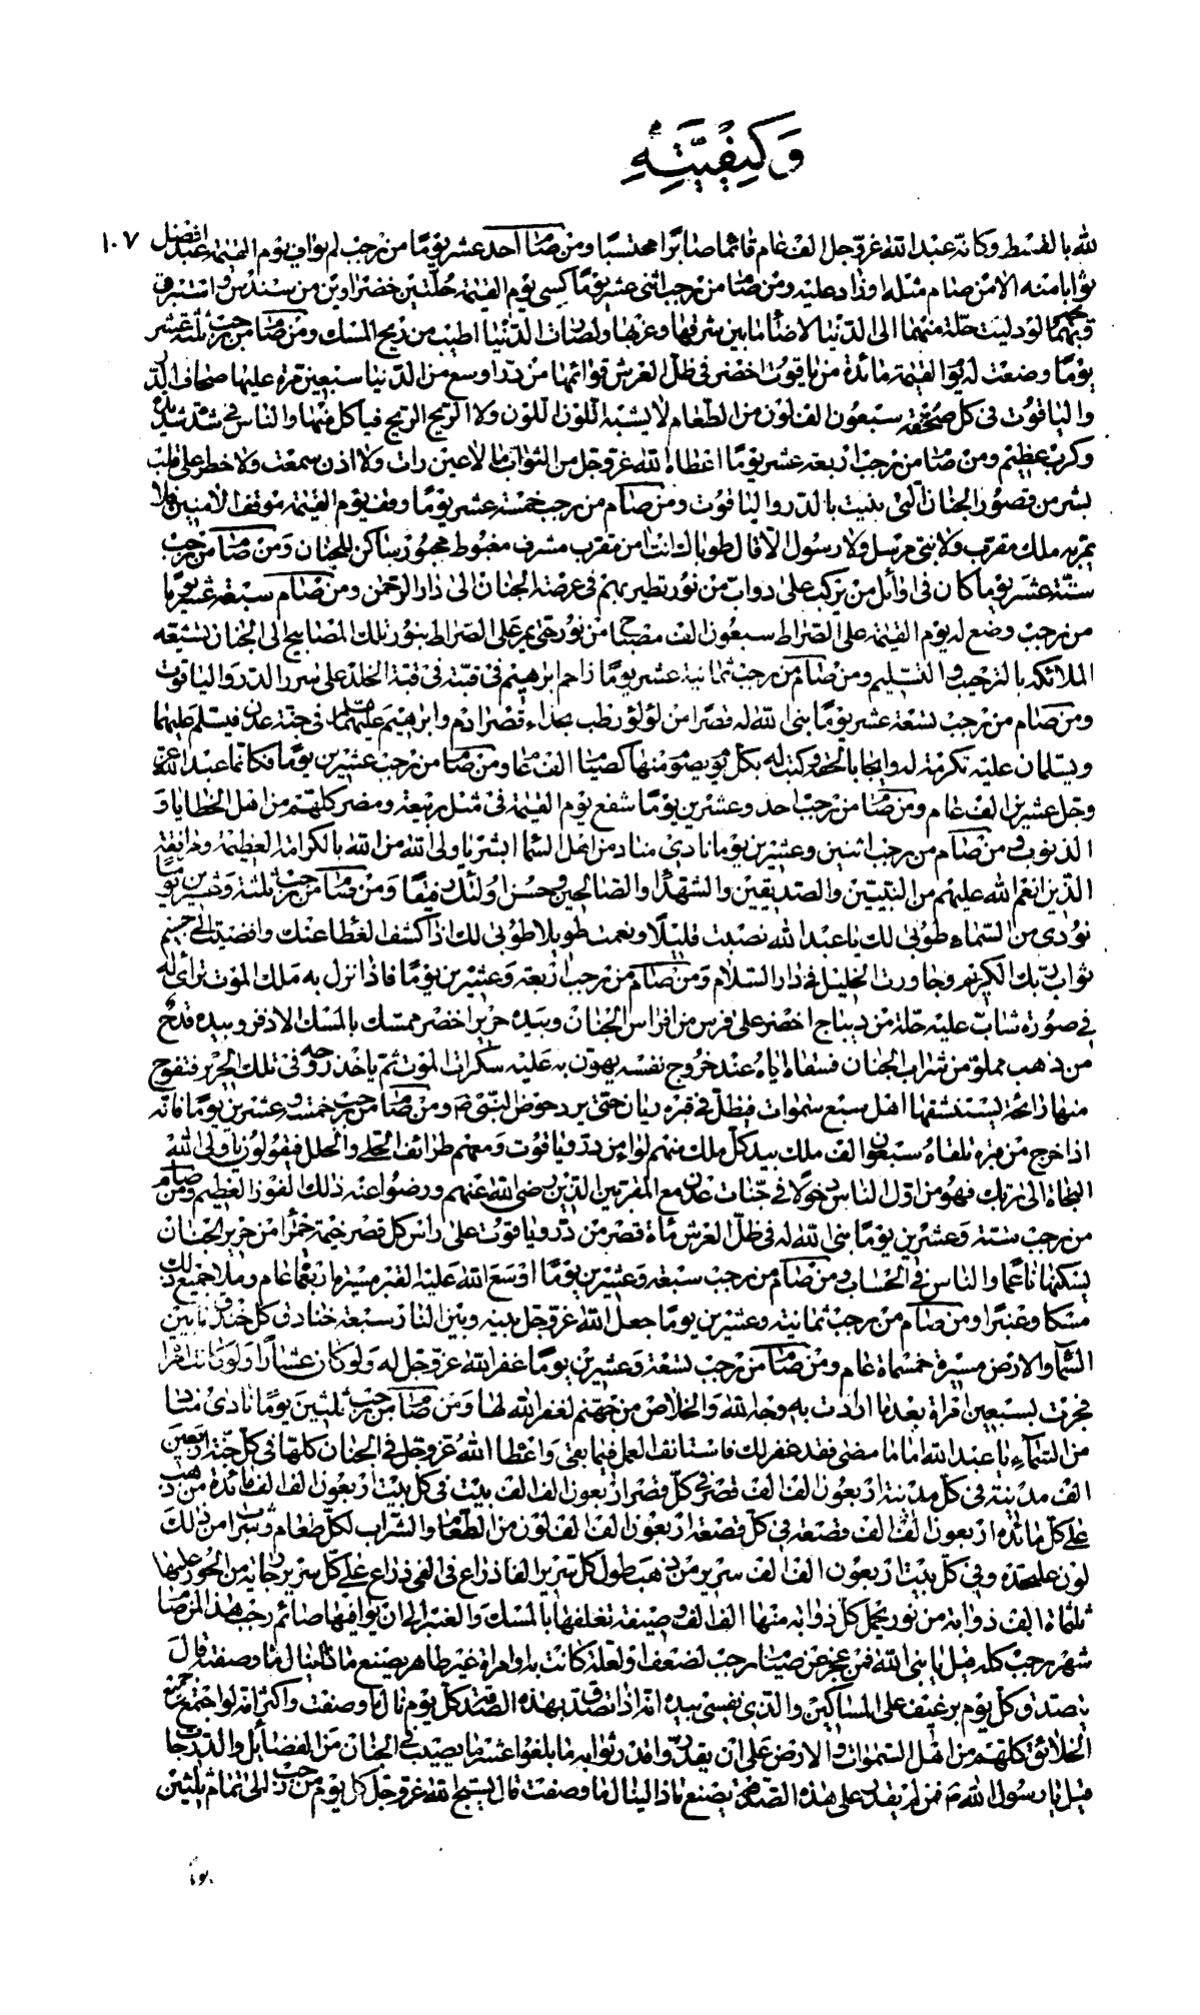 وَكَيْفِيَّتِهِ
١٠٧
لله بالقسط وكانه عبد الله عز وجل الف عام قائما صابرا محتسبا ومن صام احد عشر يوما من رجب لم يواف يوم القيمة عبد افضل
ثوابا منه الا من صام مثله او زاد عليه ومن صام من رجب اثنى عشر يوما كسى يوم القيمة حلتين خضراوين من سندس واستبرق
يحبر بهما لو دليت حلة منهما الى الدنيا لاضاء ما بين شرقها وغربها ولصارت الدنيا اطيب من ريح المسك ومن صام من رجب ثلثة عشر
يوما وضعت له يوم القيمة مائدة من ياقوت اخضر في ظل العرش قوائمها من در اوسع من الدنيا سبعين مرة عليها صحاف الدر
والياقوت في كل صحفة سبعون الف لون من الطعام لا يشبه اللون اللون ولا الريح الريح فيأكل منها والناس في شدة شديدة
وكرب عظيم ومن صام من رجب اربعة عشر يوما اعطاه الله عز وجل من الثواب ما لا عين رات ولا اذن سمعت ولا خطر على قلب
بشر من قصور الجنان التى بنيت بالدر والياقوت ومن صام من رجب خمسة عشر يوما وقف يوم القيمة موقف الامنين فلا
يمر به ملك مقرب ولا نبى مرسل ولا رسول الا قال طوباك انت امن مقرب مشرف مغبوط محبور ساكن للجنان ومن صام من رجب
ستة عشر يوما كان في اوائل من يركب على دواب من نور تطير بهم في عرصة الجنان الى دار الرحمن ومن صام سبعة عشر يوما
من رجب وضع له يوم القيمة على الصراط سبعون الف مصباح من نور حتى يمر على الصراط بنور تلك المصابيح الى الجنان تشيعه
الملائكة بالترحيب والتسليم ومن صام من رجب ثمانية عشر يوما زاحم ابرهيم في قبته في قبة الخلد على سرر الدر والياقوت
ومن صام من رجب تسعة عشر يوما بنى الله له قصرا من لؤلؤ رطب بحذاء قصر ادم وابرهيم عليهما السلم في جنة عدن فيسلم عليهما
ويسلمان عليه تكرمة له وايجابا لحقه وكتب له بكل يوم يصوم منها كصيام الف عام ومن صام من رجب عشرين يوما فكانما عبد الله عز
وجل عشرين الف عام ومن صام من رجب احد وعشرين يوما شفع يوم القيمة في مثل ربيعة ومضر كلهم من اهل الخطايا و
الذنوب ومن صام من رجب اثنين وعشرين يوما نادى مناد من اهل السماء ابشر يا ولى الله من الله بالكرامة العظيمة ومرافقة
الذين انعم الله عليهم من النبيين والصديقين والشهداء والصالحين وحسن اولئك رفيقا ومن صام من رجب ثلثة وعشرين يوما
نودى من السماء طوبى لك يا عبد الله نصبت قليلا ونعمت طويلا طوبى لك اذا كشف الغطاء عنك وافضيت الى جسيم
ثواب ربك الكريم وجاورت الخليل في دار السلام ومن صام من رجب اربعة وعشرين يوما فاذا نزل به ملك الموت تراءى له
في صورة شاب عليه حلة من ديباج اخضر على فرس من افراس الجنان وبيده حرير اخضر ممسك بالمسك الاذفر وبيده قدح
من ذهب مملو من شراب الجنان فسقاه اياه عند خروج نفسه يهون به عليه سكرات الموت ثم ياخذ روحه في تلك الحرير فتفوح
منها رائحة يستنشقها اهل سبع سموات فيظل في قبره ريان حتى يرد حوض النبى ص ومن صام من رجب خمسة وعشرين يوما فانه
اذا خرج من قبره تلقاه سبعون الف ملك بيد كل ملك منهم لواء من در وياقوت ومعهم طرائف الحلى والحلل فيقولون يا ولى الله
النجاة الى ربك فهو من اول الناس دخولا في جنات عدن مع المقربين الذين رضى الله عنهم ورضوا عنه ذلك الفوز العظيم ومن صام
من رجب ستة وعشرين يوما بنى الله له في ظل العرش مأة قصر من در وياقوت على راس كل قصر خيمة حمراء من حرير الجنان
يسكنها ناعما والناس في الحساب ومن صام من رجب سبعة وعشرين يوما اوسع الله عليه القبر مسيرة اربعمأة عام وملاء جميع ذلك
مسكا وعنبرا ومن صام من رجب ثمانية وعشرين يوما جعل الله عز وجل بينه وبين النار سبعة خنادق كل خندق ما بين
السماء والارض مسيرة خمسمأة عام ومن صام من رجب تسعة وعشرين يوما غفر الله عز وجل له ولو كان عشارا ولو كانت امراة
فجرت بسبعين امراة بعد ما ارادت به وجه الله والخلاص من جهنم لغفر الله لها ومن صام من رجب ثلثين يوما نادى مناد
من السماء يا عبد الله اما ما مضى فقد غفر لك فاستانف العمل فيما بقى واعطاه الله عز وجل في الجنان كلها في كل جنة اربعين
الف مدينة في كل مدينة اربعون الف الف قصر في كل قصر اربعون الف الف بيت في كل بيت اربعون الف الف مائدة من ذهب
على كل مائدة اربعون الف الف قصعة في كل قصعة اربعون الف الف لون من الطعام والشراب لكل طعام وشراب من ذلك
لون عليحدة وفي كل بيت اربعون الف الف سرير من ذهب طول كل سرير الفا ذراع في الفى ذراع على كل سرير جارية من الحور عليها
ثلثمأة الف ذوابة من نور يحمل كل ذوابة منها الف الف وصيفة تغلفها بالمسك والعنبر الى ان يوافيها صائم رجب هذا لمن صام
شهر رجب كله قيل يا نبى الله فمن عجز عن صيام رجب لضعف او لعلة كانت به او امراة غير طاهر يصنع ماذا لينال ما وصفته قال
يتصدق كل يوم برغيف على المساكين والذى نفسى بيده انه اذا تصدق بهذه الصدقة كل يوم نال ما وصفت واكثر انه لو اجتمع جميع
الخلائق كلهم من اهل السموات والارض على ان يقدروا قدر ثوابه ما بلغوا عشر ما يصيب في الجنان من الفضائل والدرجات
قيل يا رسول الله ص فمن لم يقدر على هذه الصدقة يصنع ماذا لينال ما وصفت قال يسبح لله عز وجل كل يوم من رجب الى تمام ثلثين
يوما